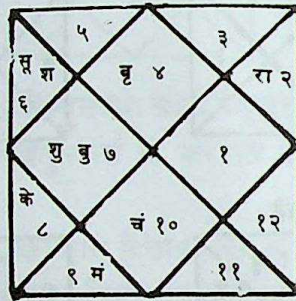 ५ ३
सू
श बृ ४ रा २
६
शु बु ७ १
के
८ चं १० १२
९ मं ११